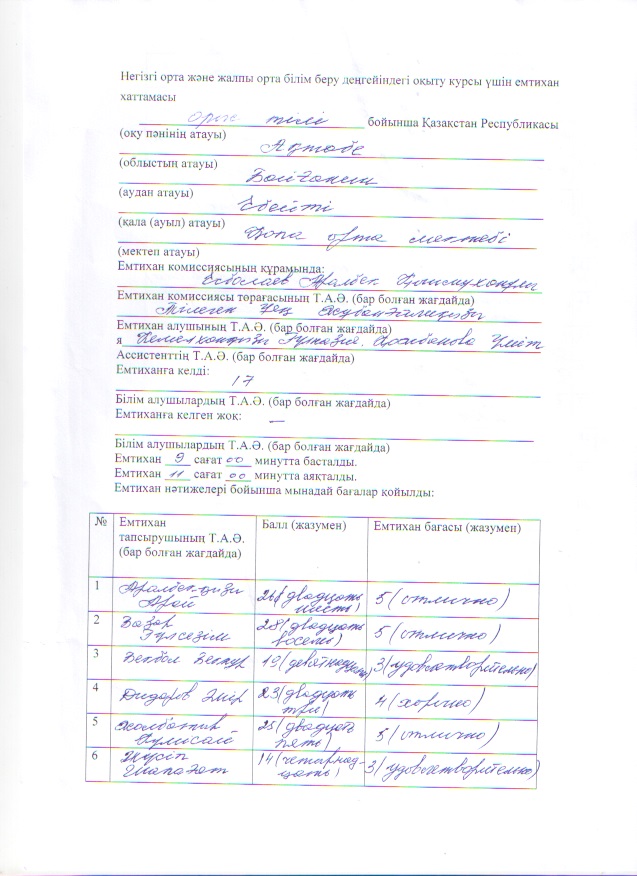 Негізгі орта және жалпы орта білім беру деңгейіндегі оқыту курсы үшін емтихан
хаттамасы
орыс тілі бойынша Қазақстан Республикасы
(оқу пәнінің атауы)
Ақтөбе
(облыстың атауы)
Байғанин
(аудан атауы)
Ебейті
(қала (ауыл) атауы)
Қопа орта мектебі
(мектеп атауы)
Емтихан комиссиясының құрамында:
Есболаев Аралбек
Емтихан комиссиясы торағасының Т.А.Ә. (бар болған жағдайда)
Тілеген
Емтихан алушының Т.А.Ә. (бар болған жағдайда)
я
Ассистенттің Т.А.Ә. (бар болған жағдайда)
Емтиханға келді:
17
Білім алушылардың Т.А.Ә. (бар болған жағдайда)
Емтиханға келген жоқ: —
Білім алушылардың Т.А.Ә. (бар болған жағдайда)
Емтихан 9 сағат 00 минутта басталды.
Емтихан 11 сағат 00 минутта аяқталды.
Емтихан нәтижелері бойынша мынадай бағалар қойылды:
№ Емтихан тапсырушының Т.А.Ә. (бар болған жағдайда) Балл (жазумен) Емтихан бағасы (жазумен)
1 Аралбекқызы Арай 26 (двадцать шесть) 5 (отлично)
2 Гүлсезім 28 (двадцать восемь) 5 (отлично)
3 Бекбол Бекнұр 19 (девятнадцать) 3 (удовлетворительно)
4 Дидаров Әмір 23 (двадцать три) 4 (хорошо)
5 25 (двадцать пять) 5 (отлично)
6 Жүсіп Шапағат 14 (четырнадцать) 3 (удовлетворительно)